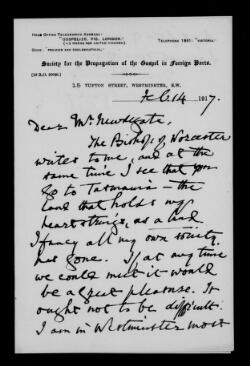 HEAD OFFICE TELEGRAPHIC ADDRESS:
"GOSPELIZE, VIC, LONDON."
(4d WORDS PER UNITED KINGDOM.)
TELEPHONE 1951: "VICTORIA."
Society for the Propagation of the Gospel in Foreign Parts.
15 TUFTON STREET, WESTMINSTER, S.W.
Feb 14 1917.
Dear Mr Newdigate,
The Bishop of Worcester
writes to me, and at the
same time I see that you
go to Tasmania — the
land that holds my
heart strings, as a land
I fancy all my own society
has gone. If at any time
we could meet it would
be a great pleasure. It
ought not to be difficult.
I am in Westminster most